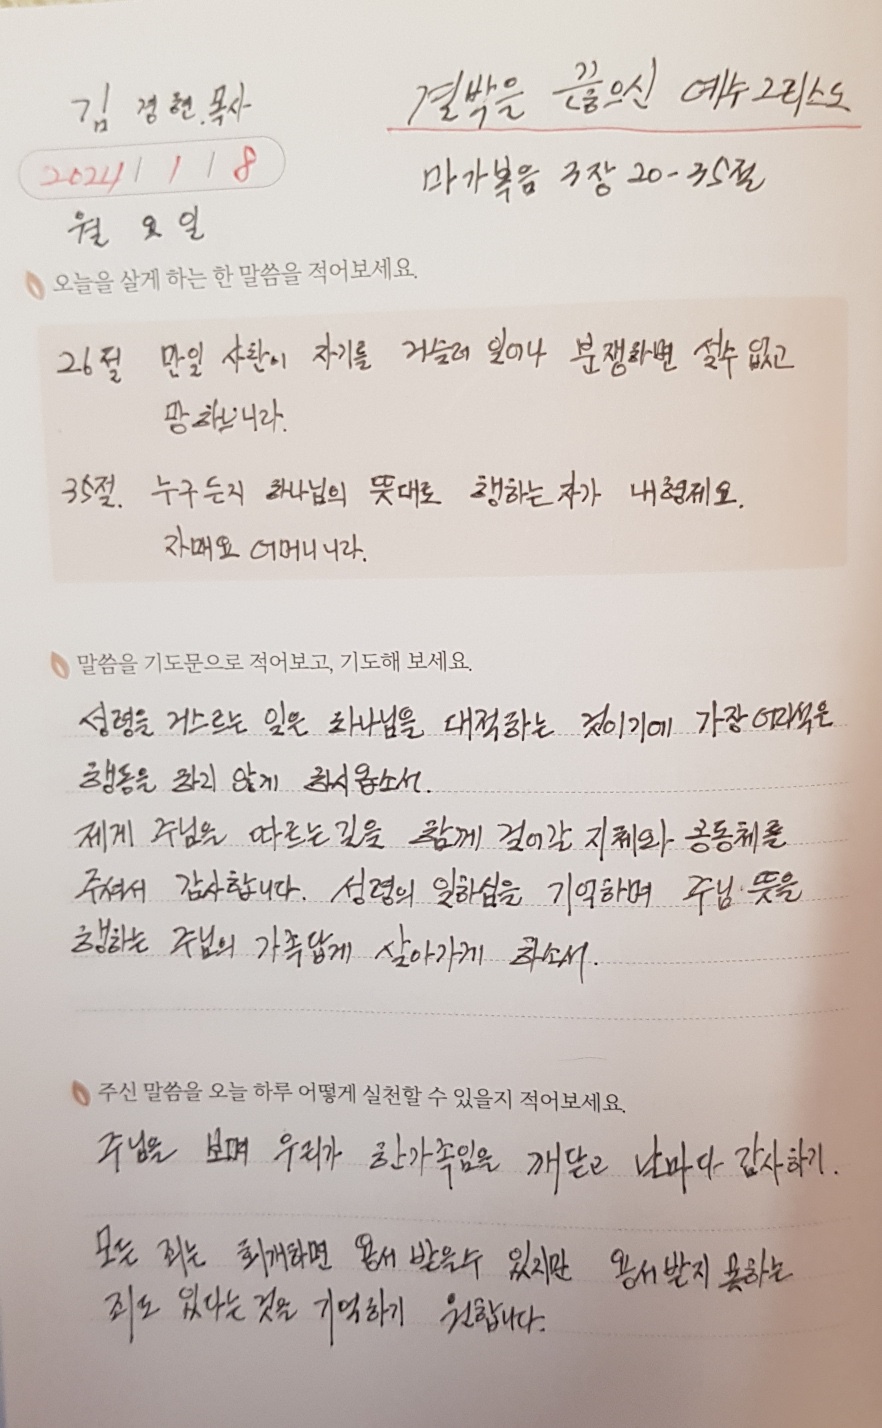 김 경현.목사
결박을 끊으신 예수그리스도
2024 / 1 / 8
마가복음 3장 20-35절
월 요 일
오늘을 살게 하는 한 말씀을 적어보세요.
26절 만일 사탄이 자기를 거슬러 일어나 분쟁하면 설수 없고
망하느니라.
35절. 누구든지 하나님의 뜻대로 행하는 자가 내형제요.
자매요 어머니니라.
말씀을 기도문으로 적어보고, 기도해 보세요.
성령을 거스르는 일은 하나님을 대적하는 것이기에 가장 어리석은
행동을 하지 않게 하시옵소서.
제게 주님을 따르는길을 함께 걸어갈 지체와 공동체를
주셔서 감사합니다. 성령의 일하심을 기억하며 주님 뜻을
행하는 주님의 가족답게 살아가게 하소서.
주신 말씀을 오늘 하루 어떻게 실천할 수 있을지 적어보세요.
주님을 보며 우리가 한가족임을 깨닫고 날마다 감사하기.
모든 죄는 회개하면 용서 받을수 있지만 용서받지 못하는
죄도 있다는것을 기억하기 원합니다.